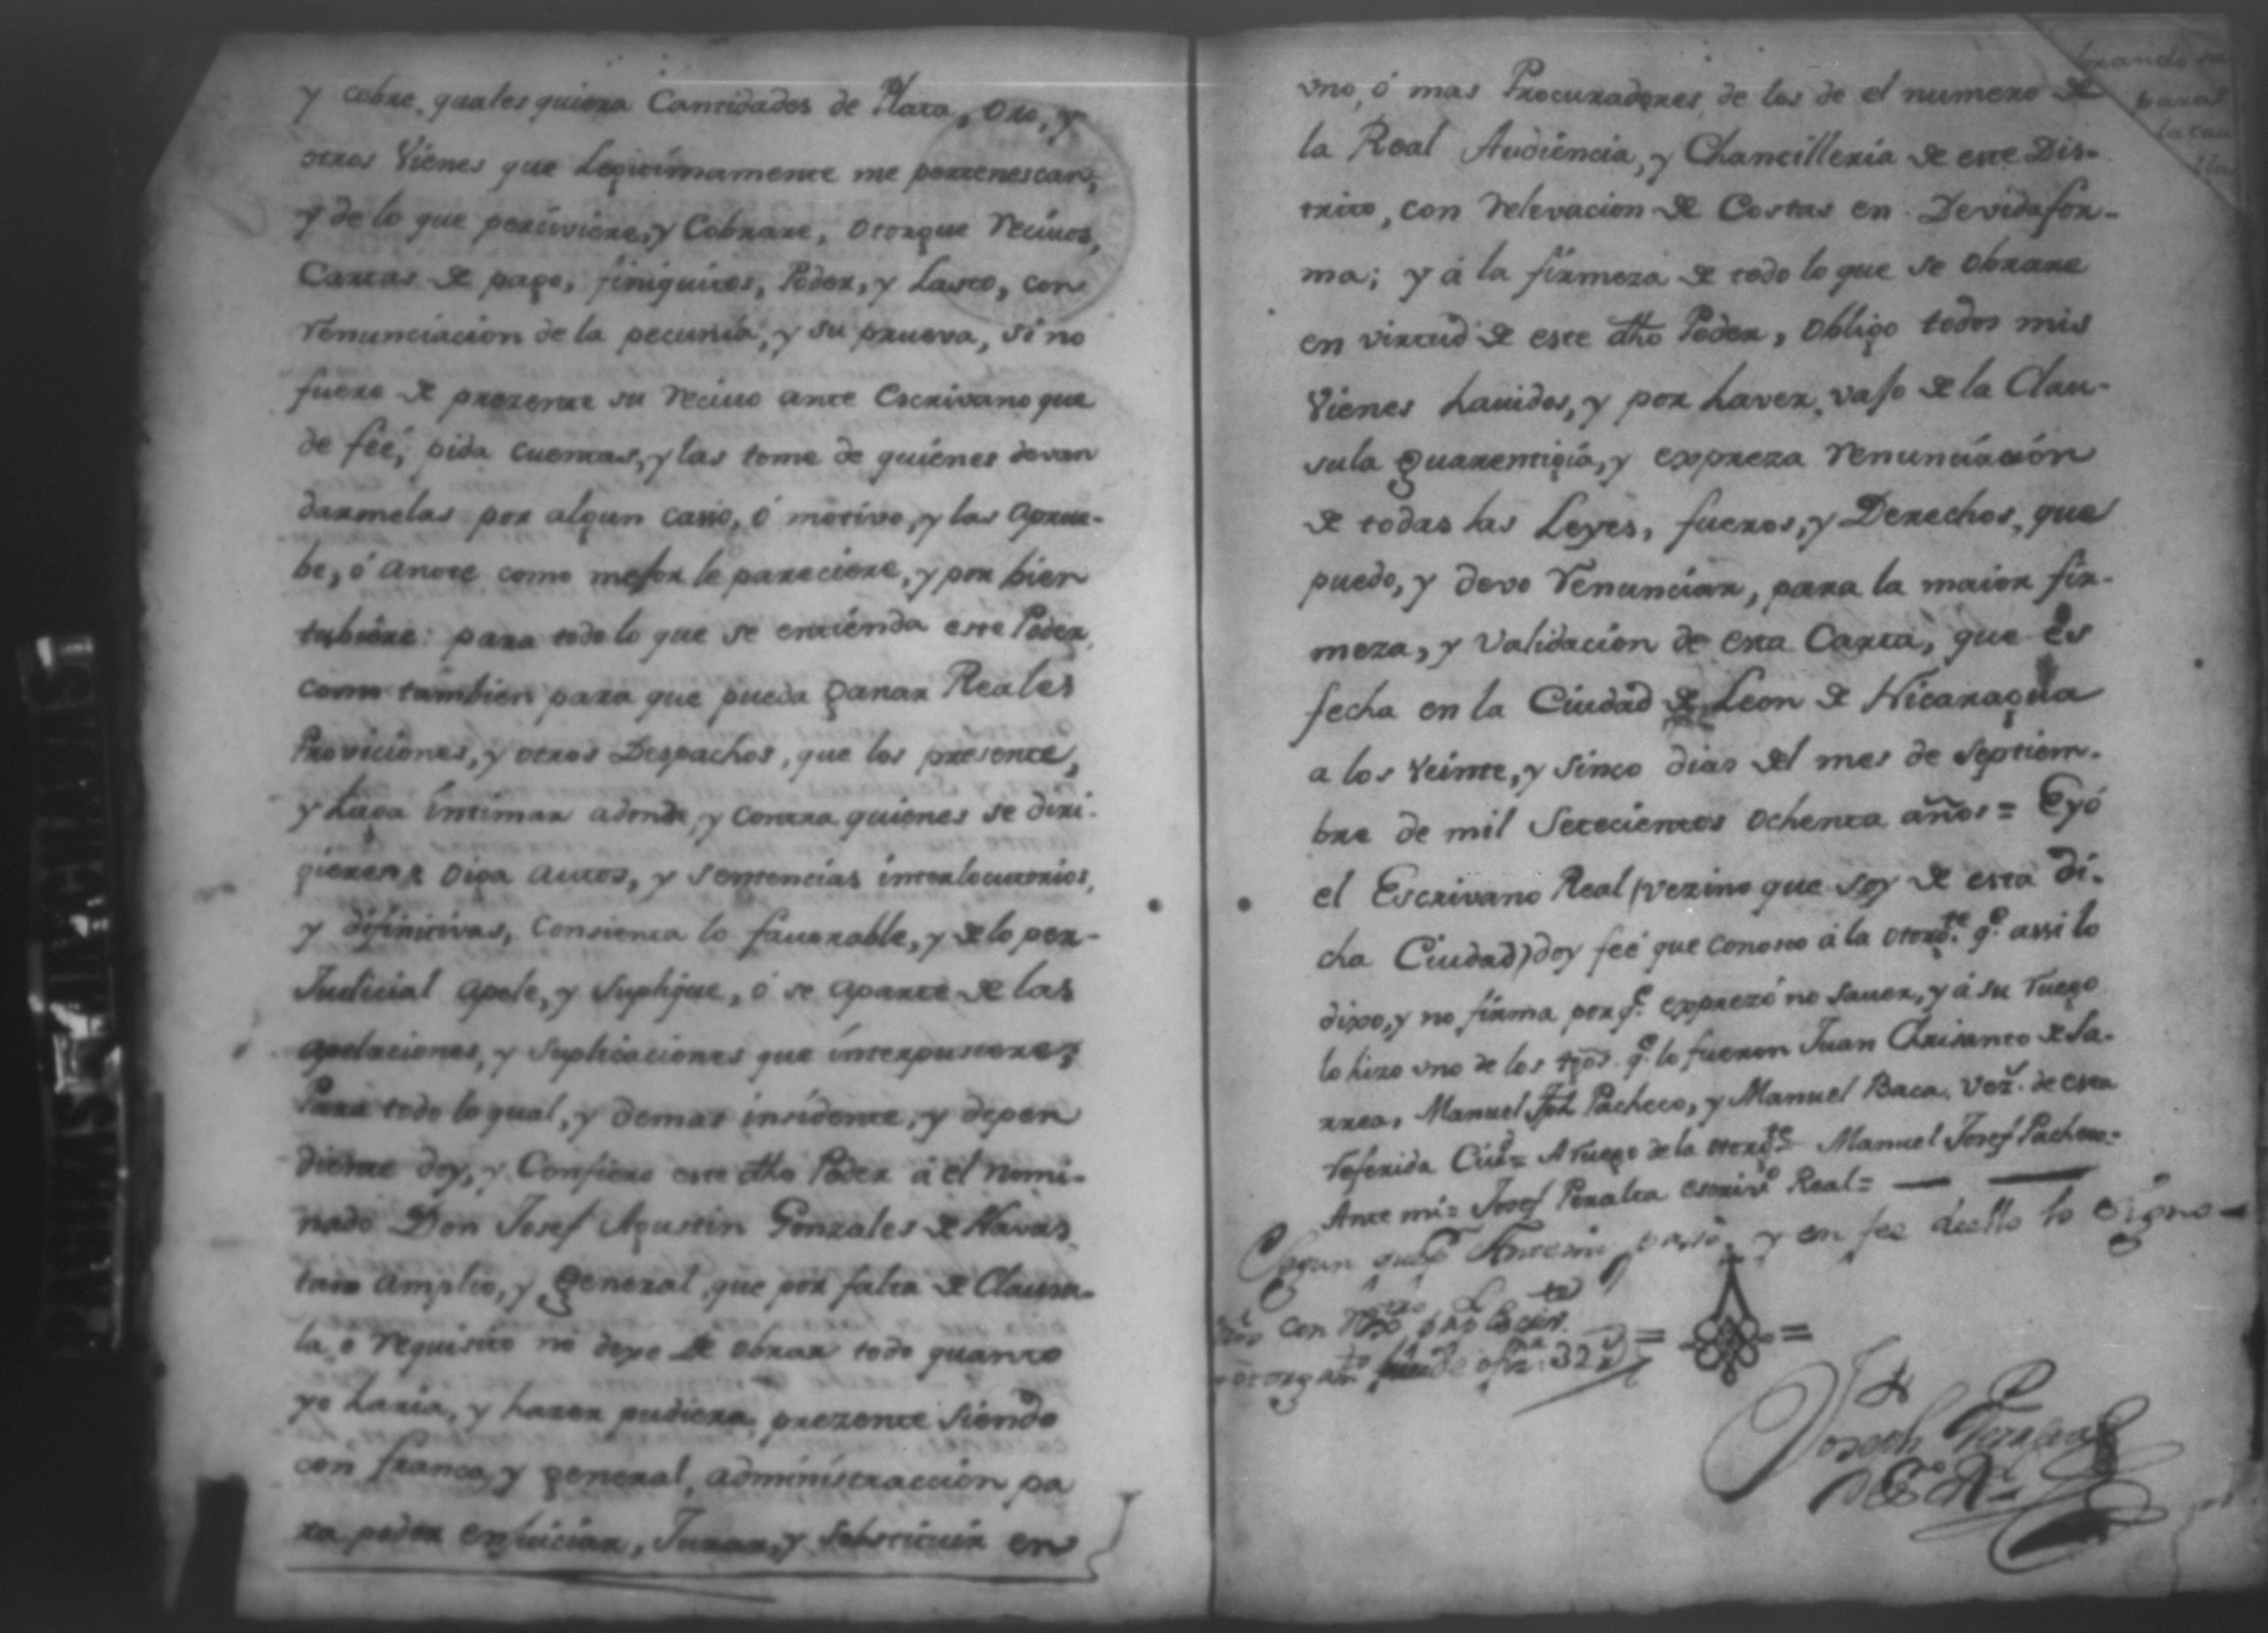 y cobre, quales quiera Cantidades de Plata, Oro, y
otros Vienes que Legitimamente me pertenescan;
y de lo que persiviere, y Cobrare, Otorgue recivos,
Cartas de pago, finiquitos, Poder, y Lasto, con
renunciacion de la pecunia, y su prueva, si no
fuere de prezente su recivo ante Escrivano que
de feé; pida cuentas, y las tome de quiénes devan
darmelas por algun caso, ó motivo, y las aprue-
be, ó anote como mejor le pareciere, y por bien
tubiére: para todo lo que se entiénda este Poder,
como tambien para que pueda ganar Reales
Proviciones, y otros Despachos, que los presente,
y haga intimar adonde, y contra quienes se diri-
gieren; Oiga autos, y sentencias interlocutorios,
y difinitivas, consienta lo favorable, y de lo per-
Judicial apele, y suplique, ó se aparte de las
apelaciones, y suplicaciones que interpusiere;
Para todo lo qual, y demas insidente, y depen
diente doy, y Confiero este dho Poder á el nomi-
nado Don Josef Agustin Gonzales de Navas
tan amplio, y general, que por falta de Clausu-
la, o requisito no dexe de obrar todo quanto
yo haria, y hazer pudiera, prezente siendo
con franca, y general, administraccion pa
ra poder enjuiciar, Jurar, y substituir en
vno, ó mas Procuradores, de los de el numero de
la Real Audiéncia, y Chancilleria de este Dis-
trito, con relevacion de Costas en Devida for-
ma; y á la firmeza de todo lo que se obrare
en virtud de este dho Poder, Obligo todos mis
Vienes havidos, y por haver, vajo de la Clau-
sula guarentigia, y expreza renunciación
de todas las Leyes, fueros, y Derechos, que
puedo, y devo renunciar, para la maior fir-
meza, y validacion de esta Carta, que es
fecha en la Ciudad de Leon de Nicaragua
a los Veinte, y Sinco dias del mes de Septiem-
bre de mil Setecientos Ochenta años = E yó
el Escrivano Real (vezino que soy de esta di-
cha Ciudad) doy feé que conosco á la otorgte. qe. assi lo
dixo, y no firma por qe. exprezó no saver, y á su ruego
lo hizo vno de los tgos. qe. lo fueron Juan Chrisanto de La-
rrea, Manuel Jph Pacheco, y Manuel Baca, Vez. de esta
referida Ciud = A ruego de la otorgte = Manuel Josef Pacheco =
Ante mi = Josef Peralta escrivo. Real =
Segun que Antemi passó, y en fee dello lo Signo
con
32
Joseph Peralta